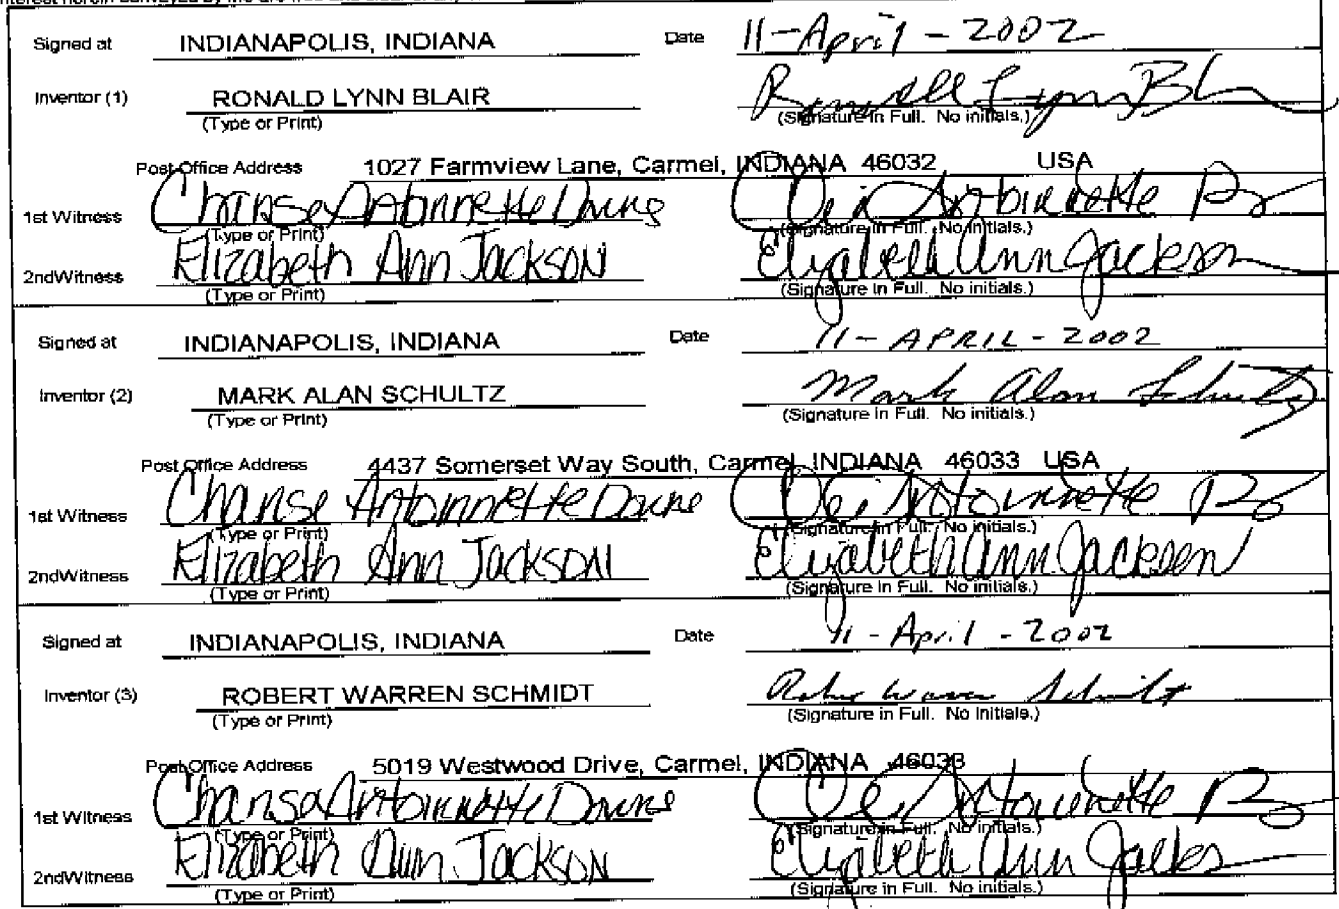 Signed at INDIANAPOLIS, INDIANA Date 11-April-2002
Inventor (1) RONALD LYNN BLAIR
(Type or Print) (Signature in Full. No initials.)
Post Office Address 1027 Farmview Lane, Carmel, INDIANA 46032 USA
1st Witness Antoinnette
(Type or Print) (Signature in Full. No initials.)
2ndWitness Elizabeth Ann Jackson Elizabeth Ann Jackson
(Type or Print) (Signature in Full. No initials.)
Signed at INDIANAPOLIS, INDIANA Date 11-APRIL-2002
Inventor (2) MARK ALAN SCHULTZ Mark Alan Schultz
(Type or Print) (Signature in Full. No initials.)
Post Office Address 4437 Somerset Way South, Carmel, INDIANA 46033 USA
1st Witness Chanse Antoinnette
(Type or Print) (Signature in Full. No initials.)
2ndWitness Elizabeth Ann Jackson Elizabeth Ann Jackson
(Type or Print) (Signature in Full. No initials.)
Signed at INDIANAPOLIS, INDIANA Date 11-April-2002
Inventor (3) ROBERT WARREN SCHMIDT
(Type or Print) (Signature in Full. No initials.)
Post Office Address 5019 Westwood Drive, Carmel, INDIANA 46033
1st Witness Antoinnette
(Type or Print) (Signature in Full. No initials.)
2ndWitness Elizabeth Ann Jackson Elizabeth Ann
(Type or Print) (Signature in Full. No initials.)